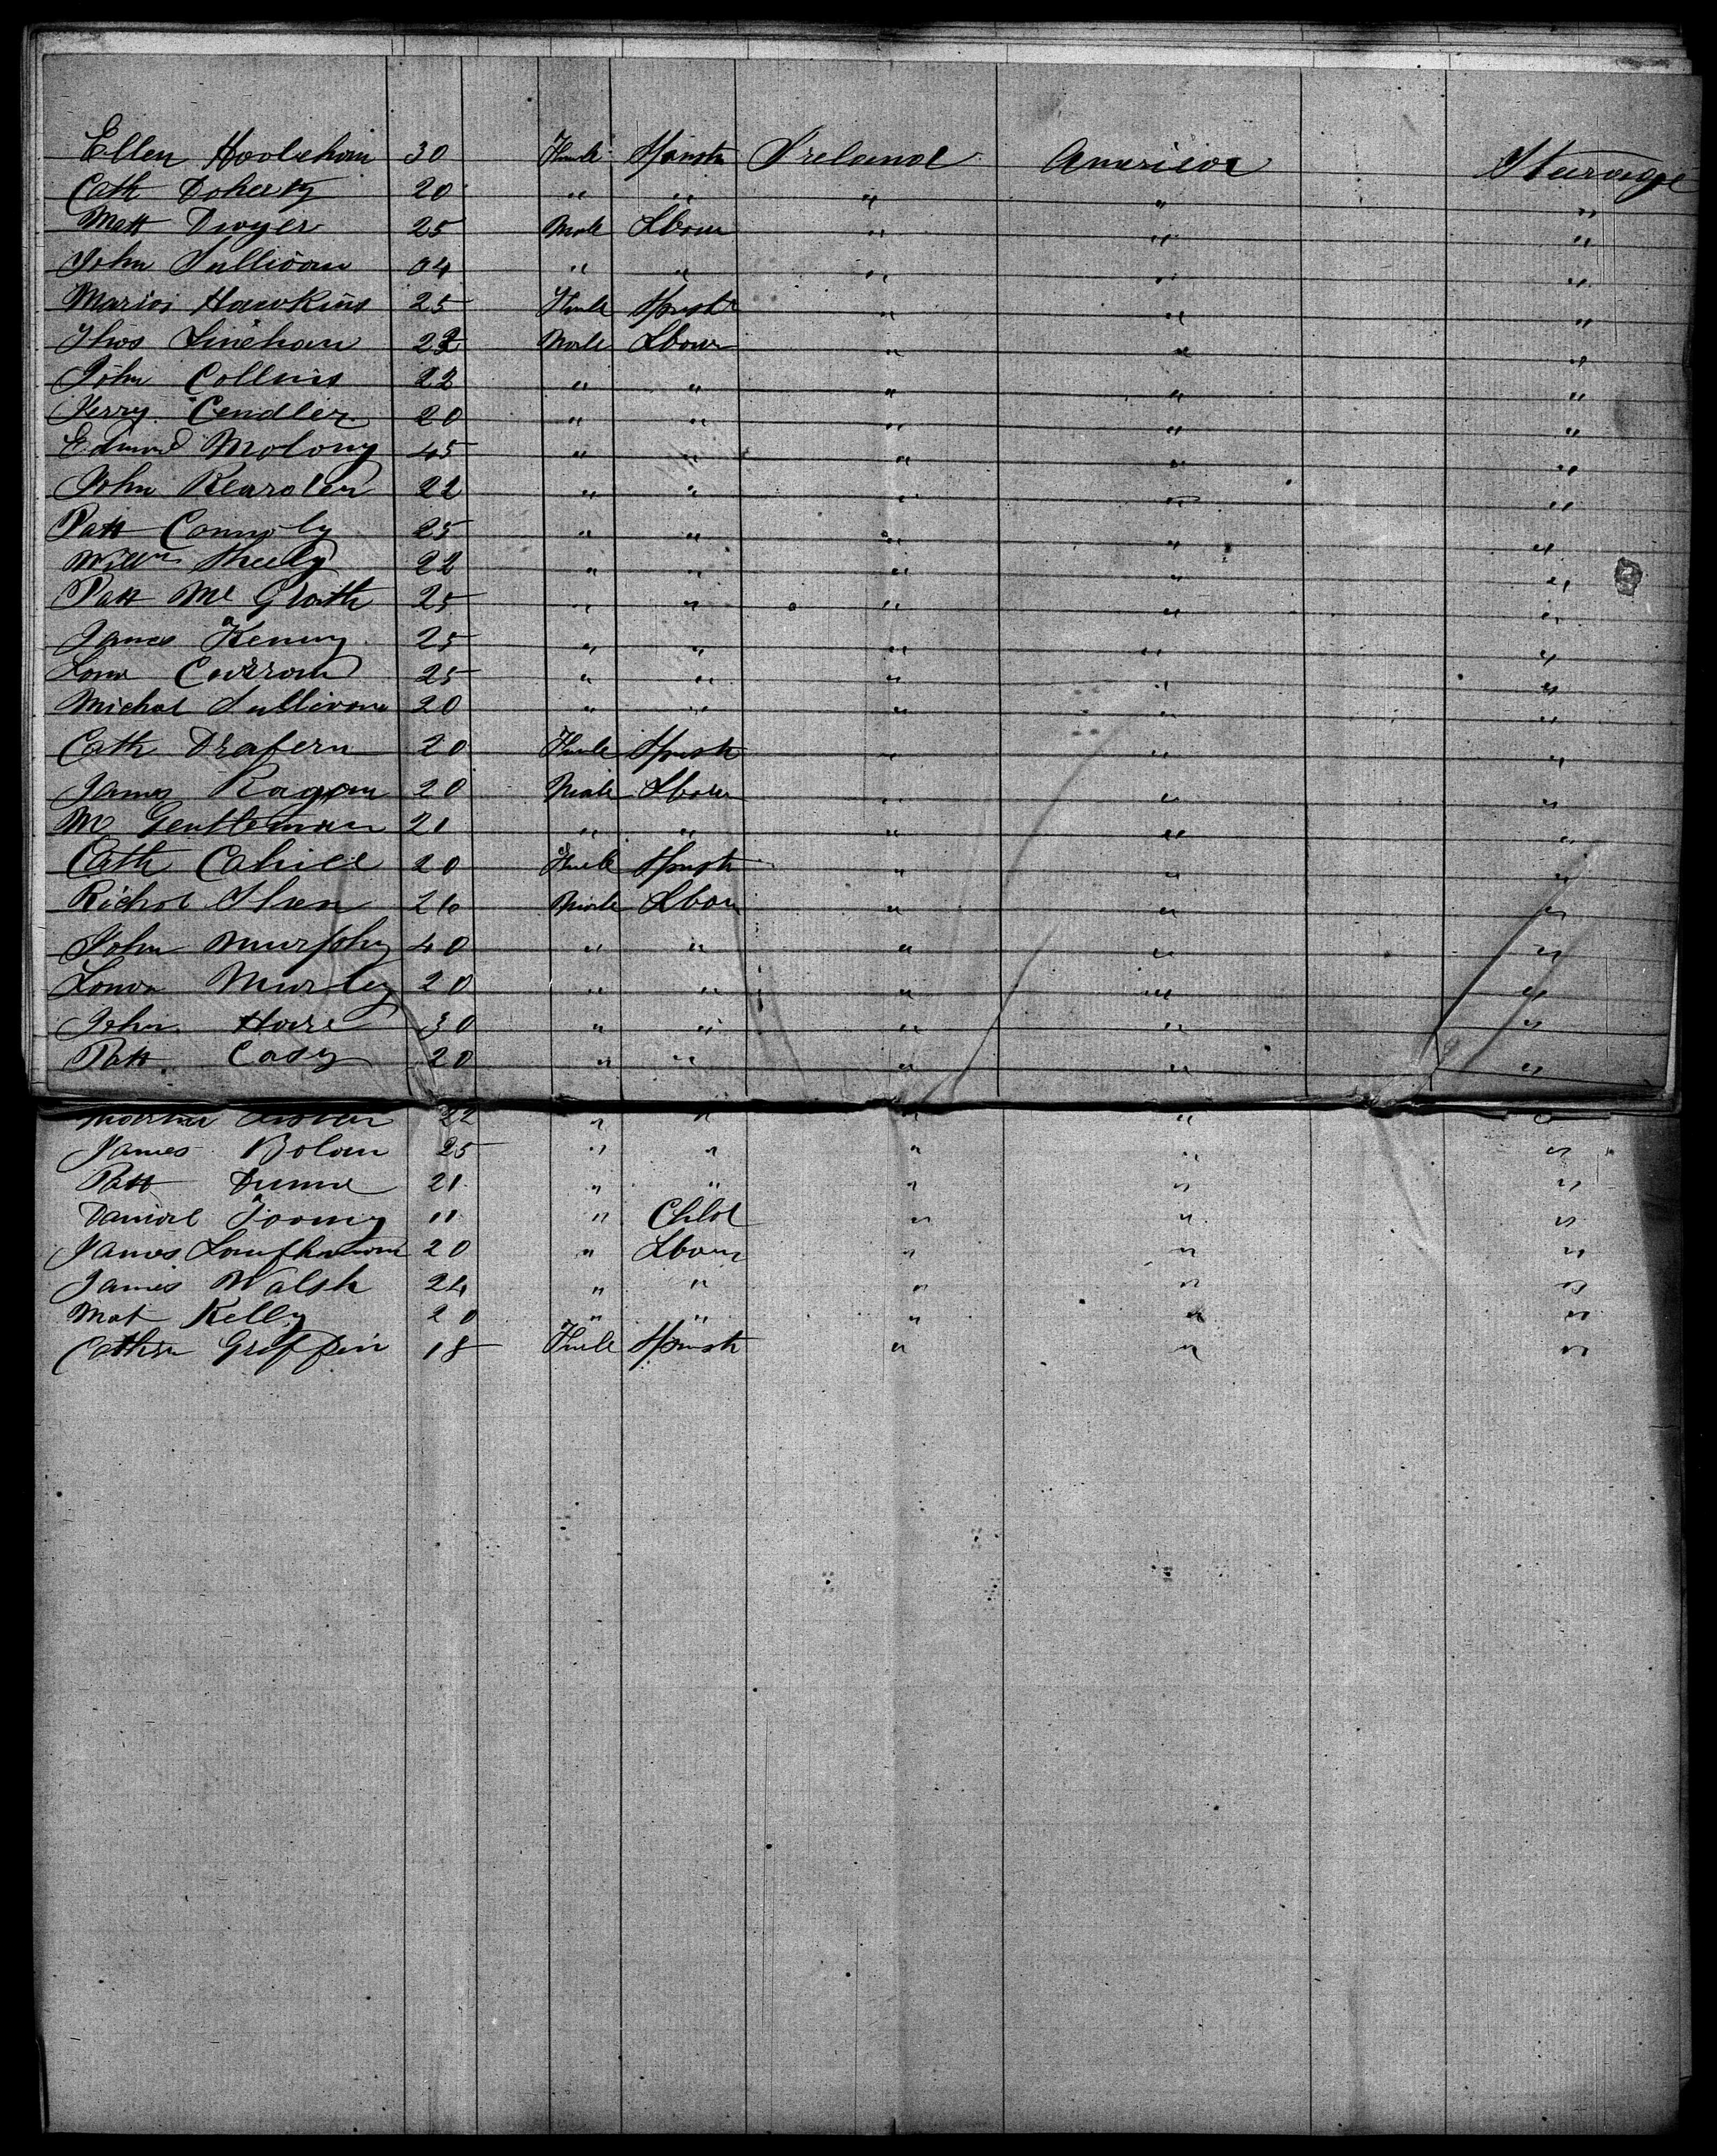 Ellen Hoolehan 30 Fmle Spinstr Ireland America Steerage
Cath Doherty 20 " " " " "
Matt Dwyer 25 Male Lbour " " "
John Sullivan 04 " " " " "
Maria Hawkins 25 Fmle Spinstr " " "
Thos Linehan 22 Male Lbour " " "
John Collins 22 " " " " "
Jerry Cendler 20 " " " " "
Edmund Molony 45 " " " " "
John 22 " " " " "
Patt Connoly 25 " " " " "
Willm 22 " " " " "
Patt Mc Grath 25 " " " " "
James Kenny 25 " " " " "
25 " " " " "
Michal Sullivan 20 " " " " "
Cath 20 Fmle Spinstr " " "
James Ragan 20 Male Lbour " " "
M Gentleman 21 " " " " "
Cath Cahill 20 Fmle Spinstr " " "
Richd 26 Male Lbour " " "
John Murphy 40 " " " " "
20 " " " " "
John Hare 30 " " " " "
Patt Casy 20 " " " " "
22 " " " " "
James Bolan 25 " " " " "
Patt Dunne 21 " " " " "
Daniel Toomy 11 " Child " " "
James 20 " Lbour " " "
James Walsh 24 " " " " "
Mat Kelly 20 " " " " "
Griffin 18 Fmle Spinstr " " "